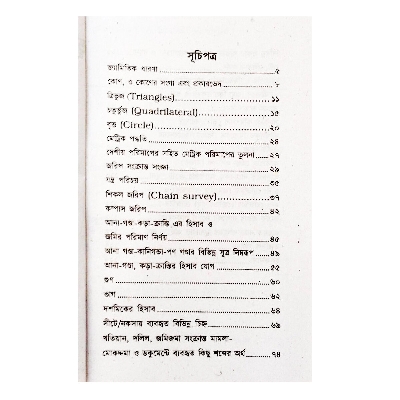 সূচিপত্র
জ্যামিতিক ধারণা ৫
কোণ, ও কোণের সংজ্ঞা এবং প্রকারভেদ ৮
ত্রিভুজ (Triangles) ১১
চতুর্ভুজ (Quadrilateral) ১৫
বৃত্ত (Circle) ২০
মেট্রিক পদ্ধতি ২৪
দেশীয় পরিমাপের সহিত মেট্রিক পরিমাপের তুলনা ২৭
জরিপ সংক্রান্ত সংজ্ঞা ২৯
যন্ত্র পরিচয় ৩৫
শিকল জরিপ (Chain survey) ৩৭
কম্পাস জরিপ ৪২
আনা-গণ্ডা-কড়া-ক্রান্তি এর হিসাব ও
জমির পরিমাণ নির্ণয় ৪৫
আনা গণ্ডা-কানিগন্ডা-পণ গন্ডার বিভিন্ন সূত্র নিম্নরূপ ৪৯
আনা-গণ্ডা, কড়া-ক্রান্তির হিসাব যোগ ৫৫
গুণ ৬০
ভাগ ৬২
দশমিকের হিসাব ৬৪
সীটে/নকসায় ব্যবহৃত বিভিন্ন চিহ্ন ৬৯
খতিয়ান, দলিল, জমিজমা সংক্রান্ত মামলা-
মোকদ্দমা ও ডকুমেন্টে ব্যবহৃত কিছু শব্দের অর্থ ৭৪